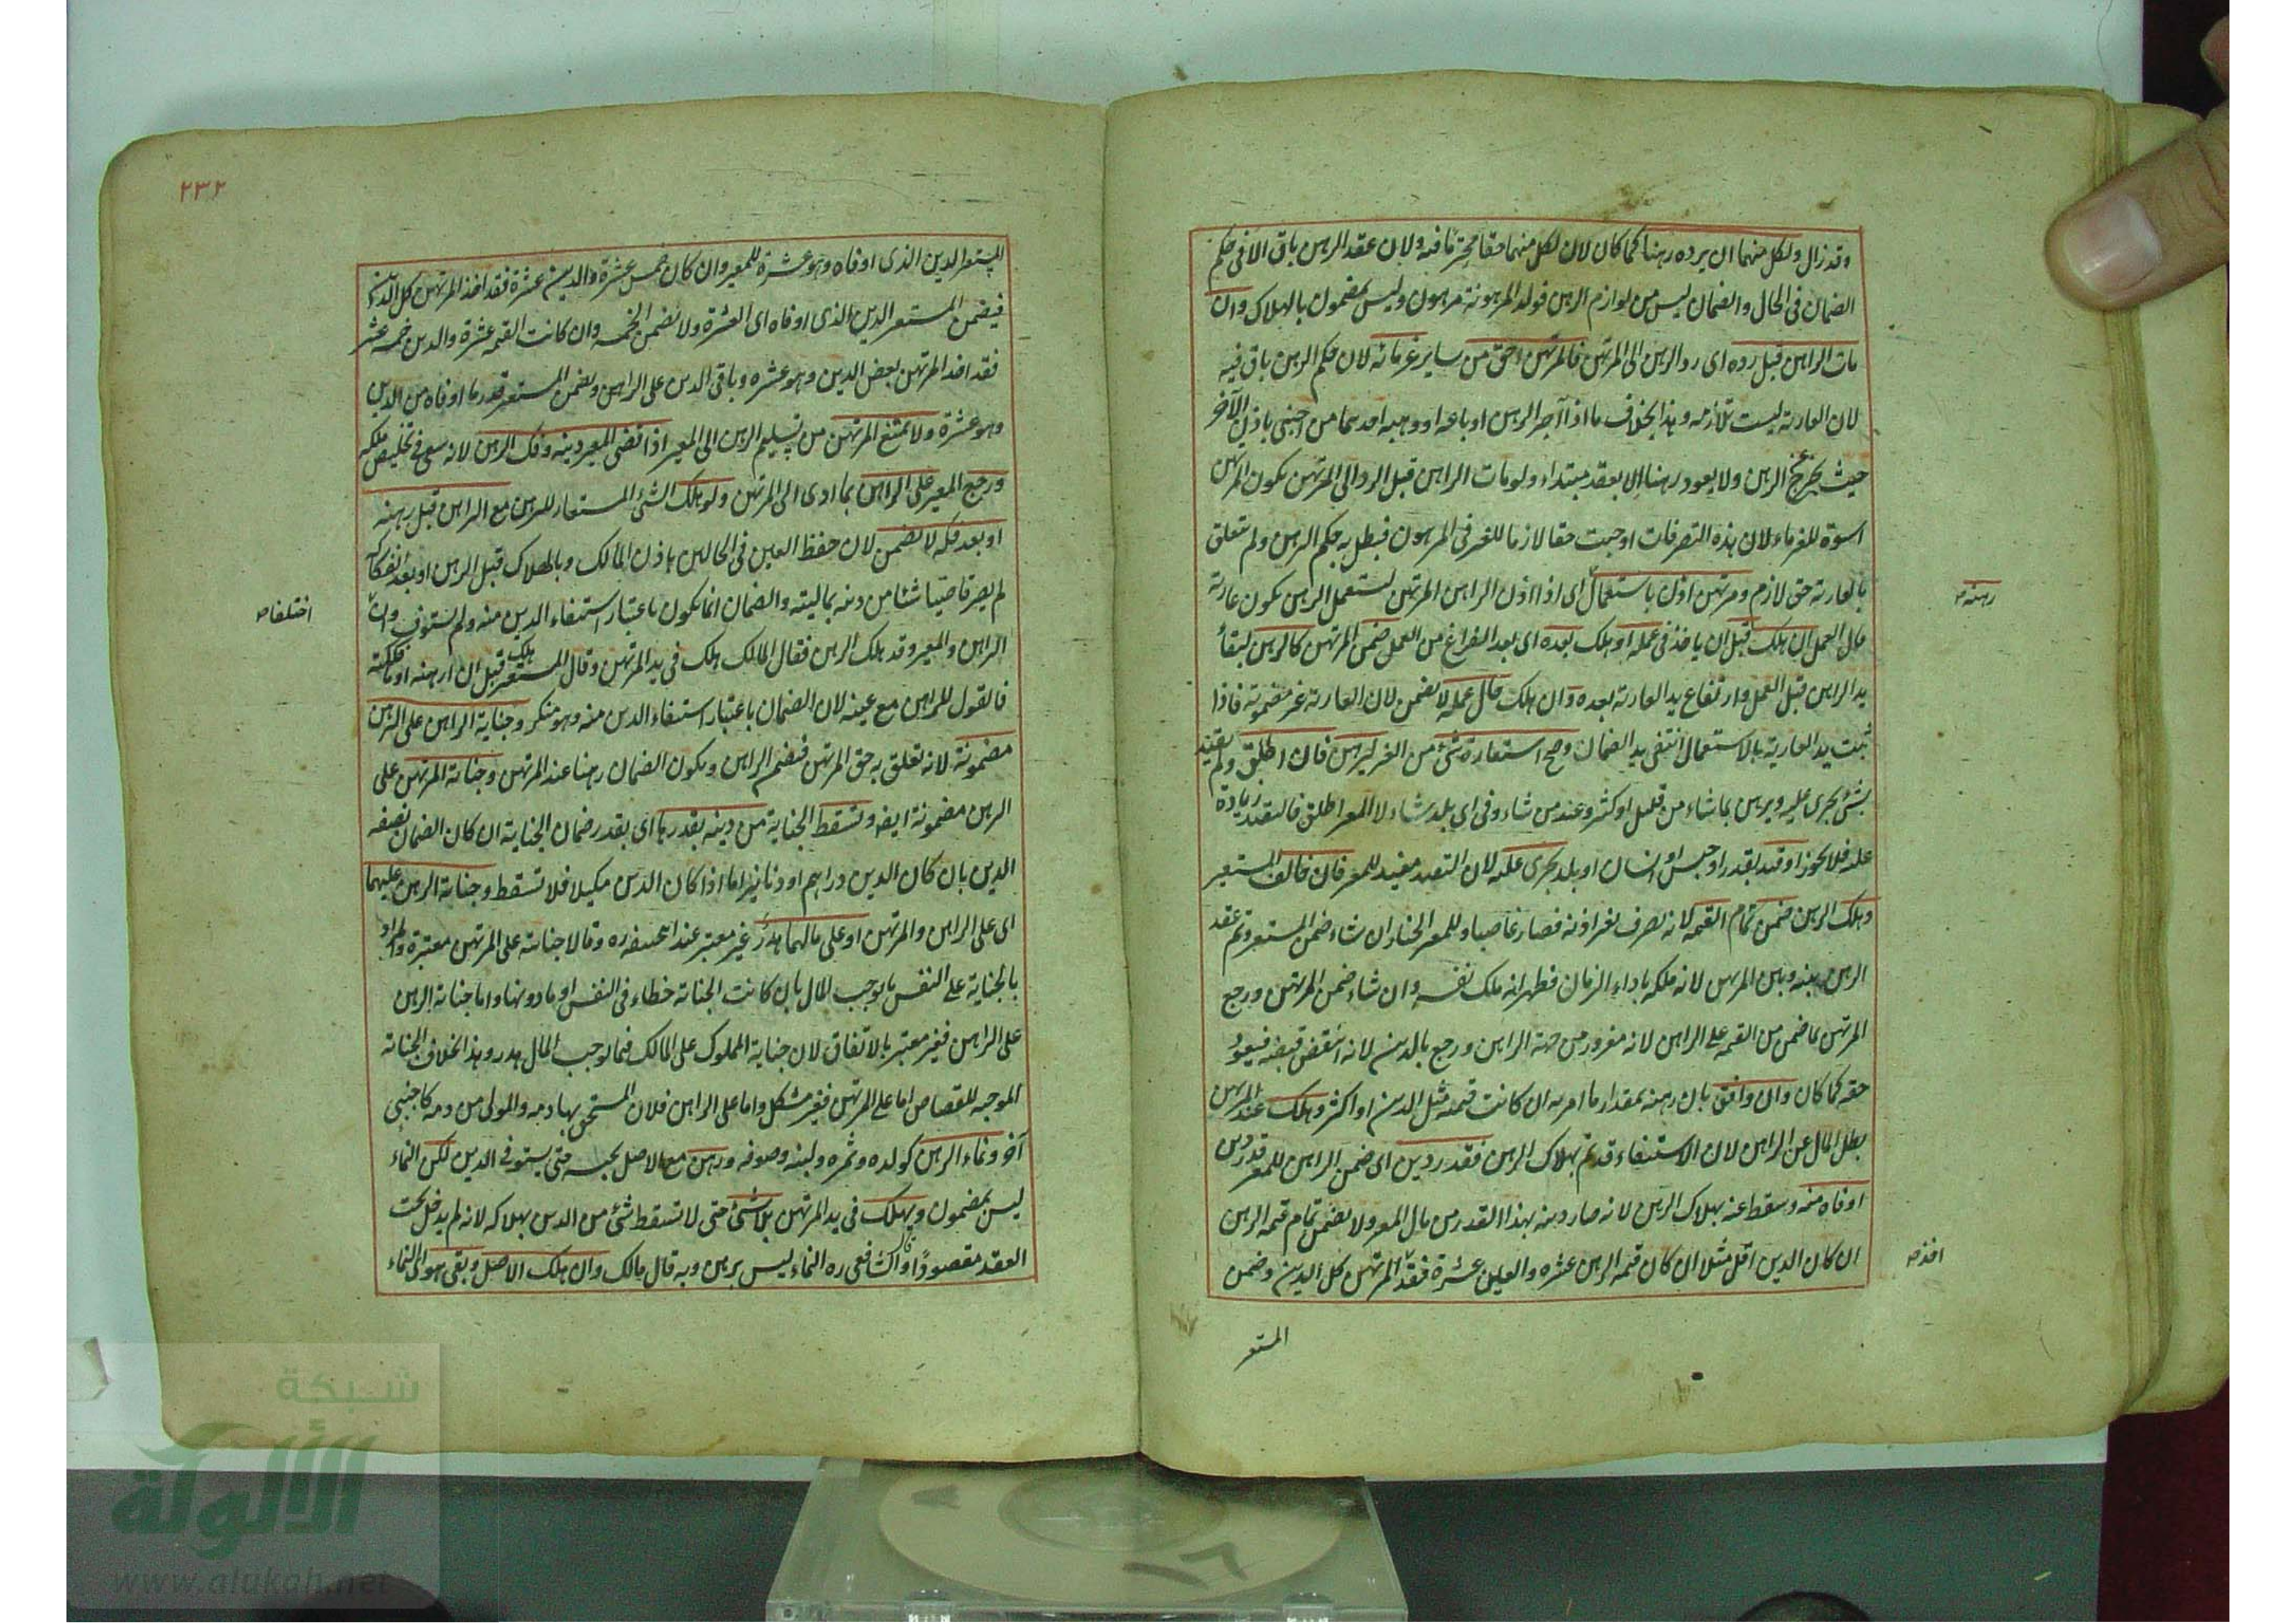 وقد زال ولكل منهما ان يرده رهنا كما كان لان لكل منهما حقا محترما فيه ولان عقد الرهن باق الا فى حكم
الضمان فى الحال والضمان ليس من لوازم الرهن فولد المرهونة مرهون وليس بمضمون بالهلاك وان
مات الراهن قبل رده اى رد الرهن الى المرتهن فالمرتهن احق من ساير غرمائه لان حكم الرهن باق فيه
لان العارية ليست بلازمه وهذا بخلاف ما اذا آجر الرهن او باعه او وهبه احدهما من اجنبى باذن الآخر
حيث يخرج عن الرهن ولا يعود رهنا الا بعقد مبتداء ولو مات الراهن قبل الرد الى المرتهن يكون المرتهن
اسوة للغرماء لان هذه التصرفات اوجبت حقا لازما للغير فى المرهون فيبطل به حكم الرهن ولم يتعلق
بالعارية حق لازم ومرتهن اذن باستعمال اى اذا اذن الراهن المرتهن ليستعمل الرهن يكون عارية
حال العمل ان هلك قبل ان ياخذ فى عمله او هلك بعده اى بعد الفراغ من العمل ضمن المرتهن كالرهن لبقاء
يد الراهن قبل العمل وارتفاع يد العارية بعده وان هلك حال عمله لا يضمن لان العارية غير مضمونة فاذا
ثبت يد العارية بالاستعمال انتفى يد الضمان وصح استعارة شئ من الغير ليرهن فان اطلق ولم يقيد
بشئ يجرى عليه ويرهن بما شاء من قليل او كثير وعند من شاء وفى اى بلد شاء لان المعير اطلق فالتقييد زيادة
عليه فلا يجوز او قيد بقدر او جنس او انسان او بلد يجرى عليه لان التقييد مفيد للمعير فان خالف المستعير
وهلك الرهن ضمن تمام القيمه لانه تصرف بغير اذنه فصار غاصبا وللمعير الخيار ان شاء ضمن المستعير وتم عقد
الرهن بينه وبين المرتهن لانه ملكه باداء الزمان فظهر انه ملك نفسه وان شاء ضمن المرتهن ورجع
المرتهن بما ضمن من القيمه على الراهن لانه مغرور من جهة الراهن ورجع بالدين لانه انتقض قبضه فيعود
حقه كما كان وان وافق بان رهنه بمقدار ما امر به ان كانت قيمته مثل الدين او اكثر وهلك عند المرتهن
بطل المال عن الراهن لان الاستيفاء قد تم بهلاك الرهن فقدر دين اى ضمن الراهن للمعير قدر دين
اوفاه منه وسقط عنه بهلاك الرهن لانه صار دينه بهذا القدر من مال المعير ولا يضمن تمام قيمة الرهن
ان كان الدين اقل مثلا ان كان قيمة الرهن عشره والدين عشرة فقد المرتهن كل الدين وضمن
رهنه صح
اخذ صح
المستعير
٢٣٢
المستعير الدين الذى اوفاه وهو عشرة للمعير وان كان خمس عشرة والدين عشرة فقد اخذ المرتهن كل الدين
فيضمن المستعير الدين الذى اوفاه اى العشرة ولا يضمن الخمسه وان كانت القيمه عشرة والدين خمسه عشر
فقد اخذ المرتهن بعض الدين وهو عشره وباقى الدين على الراهن ويضمن المستعير قدر ما اوفاه من الدين
وهو عشرة ولا يمتنع المرتهن من تسليم الرهن الى المعير اذا قضى المعير دينه وفك الرهن لانه سعى فى تخليص ملكه
ورجع المعير على الراهن بما ادى الى المرتهن ولو هلك الشئ المستعار للرهن مع الراهن قبل رهنه
او بعد فكه لا يضمن لان حفظ العين فى الحالين باذن المالك وبالهلاك قبل الرهن او بعد انفكاكه
لم يصر قاضيا شئا من دينه بماليته والضمان انما يكون باعتبار استيفاء الدين منه ولم يستوف وان
الراهن والمعير وقد هلك الرهن فقال المالك هلك فى يد المرتهن وقال المستعير هلك قبل ان ارهنه او ما فككته
فالقول للراهن مع يمينه لان الضمان باعتبار استيفاء الدين منه وهو منكر وجناية الراهن على الرهن
مضمونة لانه تعلق به حق المرتهن فيضمن الراهن ويكون الضمان رهنا عند المرتهن وجناية المرتهن على
الرهن مضمونة ايضا وتسقط الجناية من دينه بقدرها اى بقدر ضمان الجناية ان كان الضمان بصفه
الدين بان كان الدين دراهم او دنانير اما اذا كان الدين مكيلا فلا تسقط وجناية الرهن عليهما
اى على الراهن والمرتهن او على مالهما هدر غير معتبر عند ابيحنيفه ره وقالا جنايته على المرتهن معتبرة والمراد
بالجناية على النفس ما يوجب المال بان كانت الجناية خطاء فى النفس او ما دونها واما جناية الرهن
على الراهن فغير معتبر بالاتفاق لان جناية المملوك على المالك فيما يوجب المال هدر وهذا بخلاف الجناية
الموجبه للقصاص اما على المرتهن فغير مشكل واما على الراهن فلان المستحق بها دمه والمولى من دمه كاجنبى
آخر ونماء الرهن كولده وثمره ولبنه وصوفه ورهن مع الاصل يحبسه حتى يستوفى الدين لكن النماء
ليس بمضمون ويهلك فى يد المرتهن بلا شئ حتى لا تسقط شئ من الدين بهلاكه لانه لم يدخل تحت
العقد مقصودًا وقال الشافعى ره النماء ليس برهن وبه قال مالك وان هلك الاصل وبقى هو اى النماء
اختلفا صح
شبكة
الألوكة
www.alukah.net